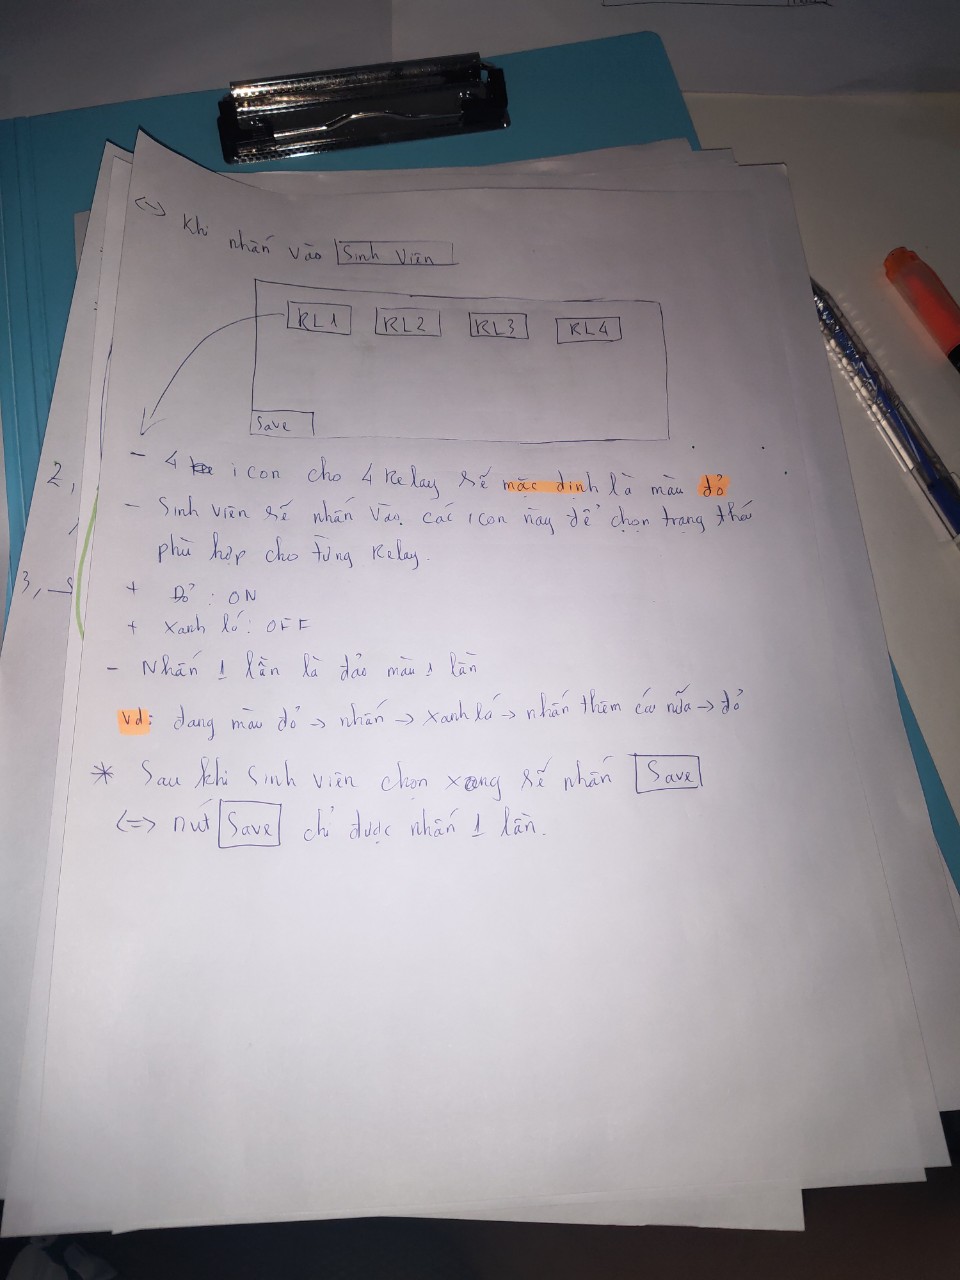 <=> Khi nhấn vào Sinh Viên
RL1 RL2 RL3 RL4
Save
- 4 icon cho 4 Relay sẽ mặc định là màu đỏ
- Sinh viên sẽ nhấn vào các icon này để chọn trạng thái
phù hợp cho từng Relay.
+ Đỏ : ON
+ Xanh lá : OFF
- Nhấn 1 lần là đảo màu 1 lần
Vd: đang màu đỏ → nhấn → xanh lá → nhấn thêm cái nữa → đỏ
* Sau khi sinh viên chọn xong sẽ nhấn Save
<=> nút Save chỉ được nhấn 1 lần.
2,
3,